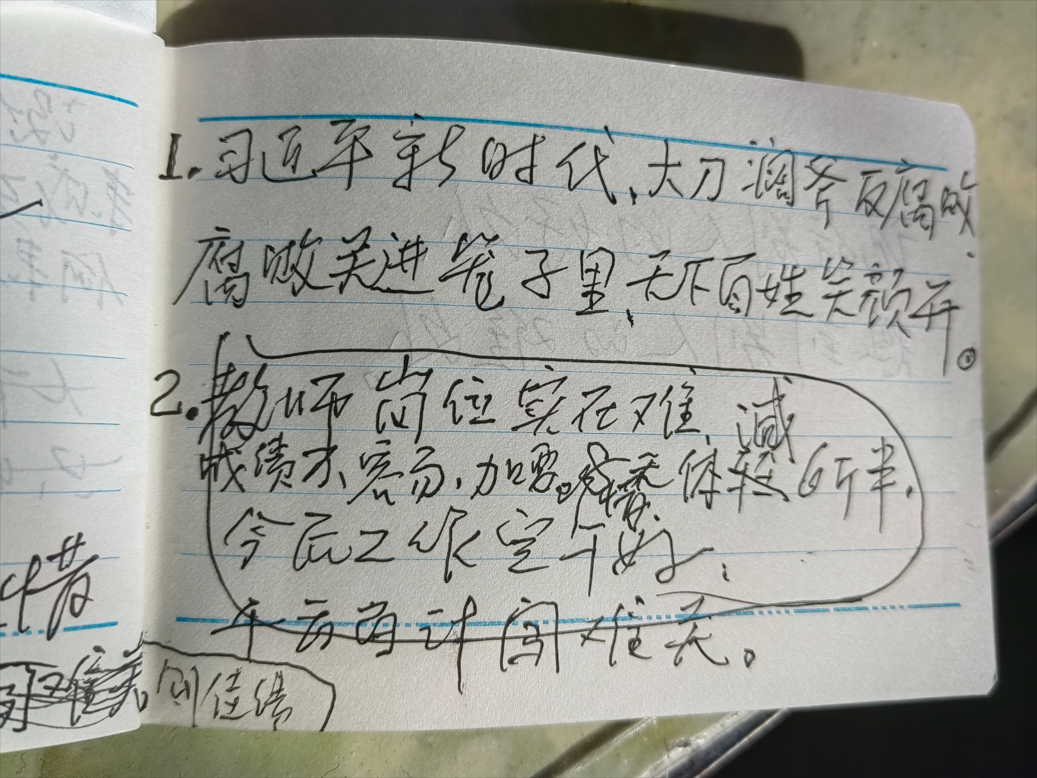 1. 习近平新时代、大刀阔斧反腐败、
腐败关进笼子里、天下百姓笑颜开。
2. 教师岗位实在难、
成绩不容易、加要。体轻减6斤半、
今后工作定干好、
千方百计闯难关。
惜
创佳绩